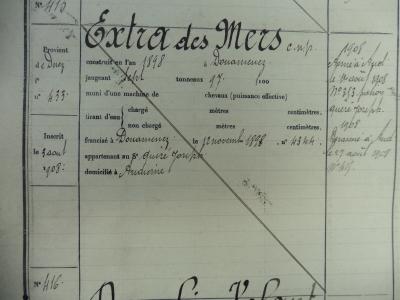 No 415
Provient
de Dnez
No 433.
Inscrit
le 5 aout
1908.
Extra des Mers c.n.p.
construit en l'an 1898 à Douarnenez
jaugeant sept tonneaux 97/100
muni d'une machine de chevaux (puissance effective)
tirant d'eau chargé mètres centimètres.
non chargé mètres centimètres.
francisé à Douarnenez le 12 novembre 1898 no 4344
appartenant au Sr Quéré Joseph
domicilié à Audierne
1908
Armé à Aud.
le 1er aout 1908
No 353 patron
Quéré Joseph
1908
Désarmé à Aud.
le 27 aout 1908
No 416